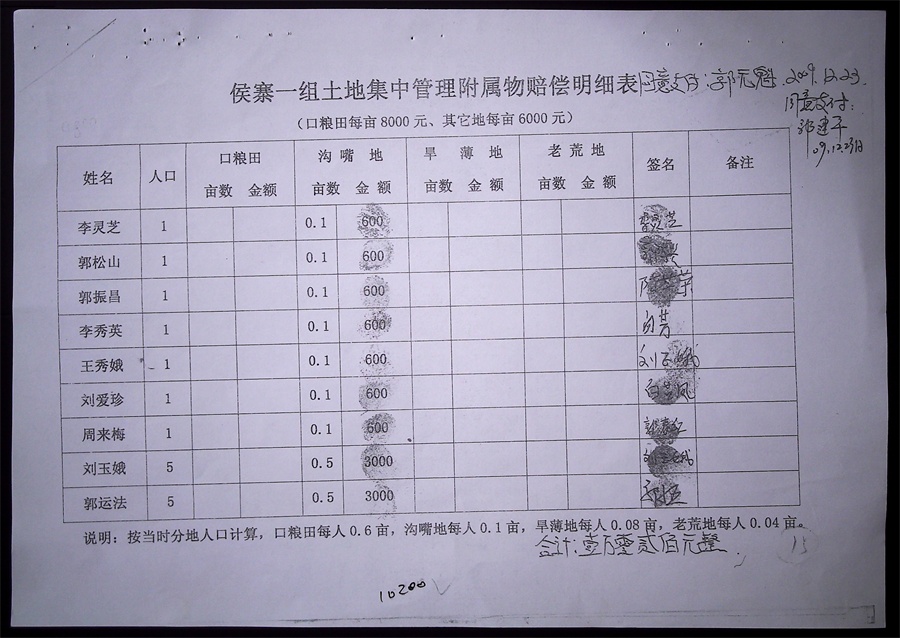 侯寨一组土地集中管理附属物赔偿明细表
同意支付：郭元魁 2009.12.23.
同意支付：
郭建平
09.12.23日
（口粮田每亩8000元、其它地每亩6000元）
姓名 人口 口粮田 沟嘴地 旱薄地 老荒地 签名 备注
亩数 金额 亩数 金额 亩数 金额 亩数 金额
李灵芝 1 0.1 600 李灵芝
郭松山 1 0.1 600
郭振昌 1 0.1 600
李秀英 1 0.1 600
王秀娥 1 0.1 600 刘玉娥
刘爱珍 1 0.1 600
周来梅 1 0.1 600
刘玉娥 5 0.5 3000 刘玉娥
郭运法 5 0.5 3000
说明：按当时分地人口计算，口粮田每人0.6亩，沟嘴地每人0.1亩，旱薄地每人0.08亩，老荒地每人0.04亩。
合计：壹万零贰佰元整
15
10200